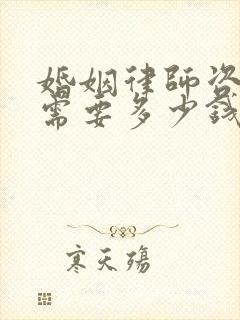 婚姻律師咨
需要多少錢
寒天殤